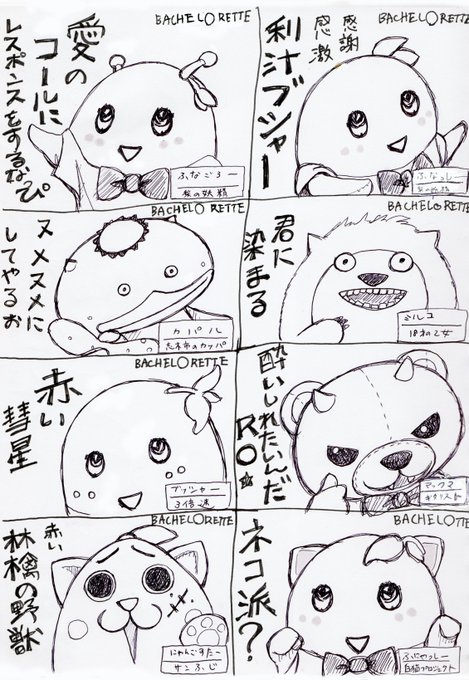 BACHELORETTE
感謝
感激
梨汁ブシャー
ふなっしー
BACHELORETTE
愛の
コールに
レスポンスをするなぴ
ふなごろー
梨の妖精
BACHELORETTE
君に
染まる
ミルコ
18才の乙女
BACHELORETTE
ヌメヌメに
してやるお
カパル
志木市のカッパ
BACHELORETTE
酔いしれたいんだ
RO
BACHELORETTE
赤い
彗星
ブッシャー
3倍速
BACHELOTTE
ネコ派?
ふにゃっしー
BACHELORETTE
赤い
林檎の野獣
にゃんごすたー
サンふじ